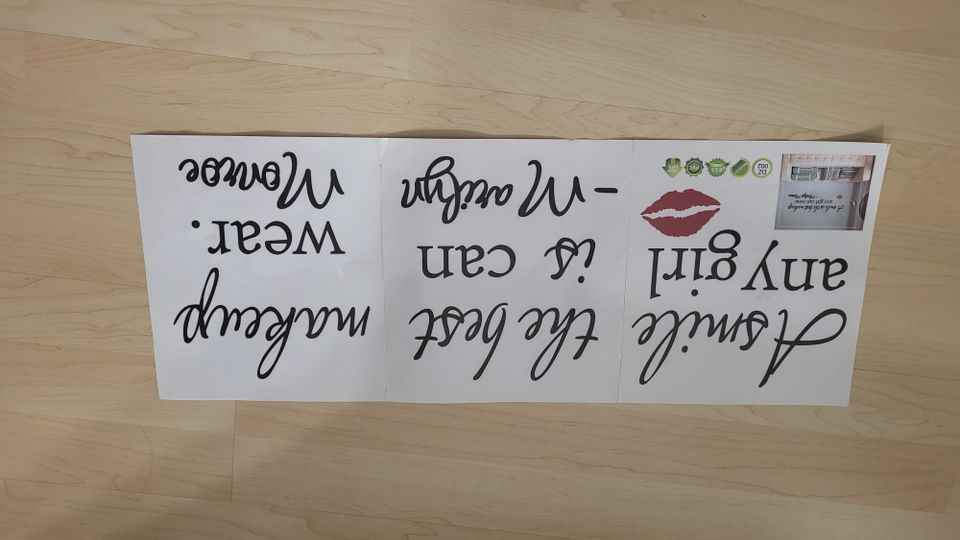 A smile the best makeup
any girl is can wear.
- Marilyn Monroe